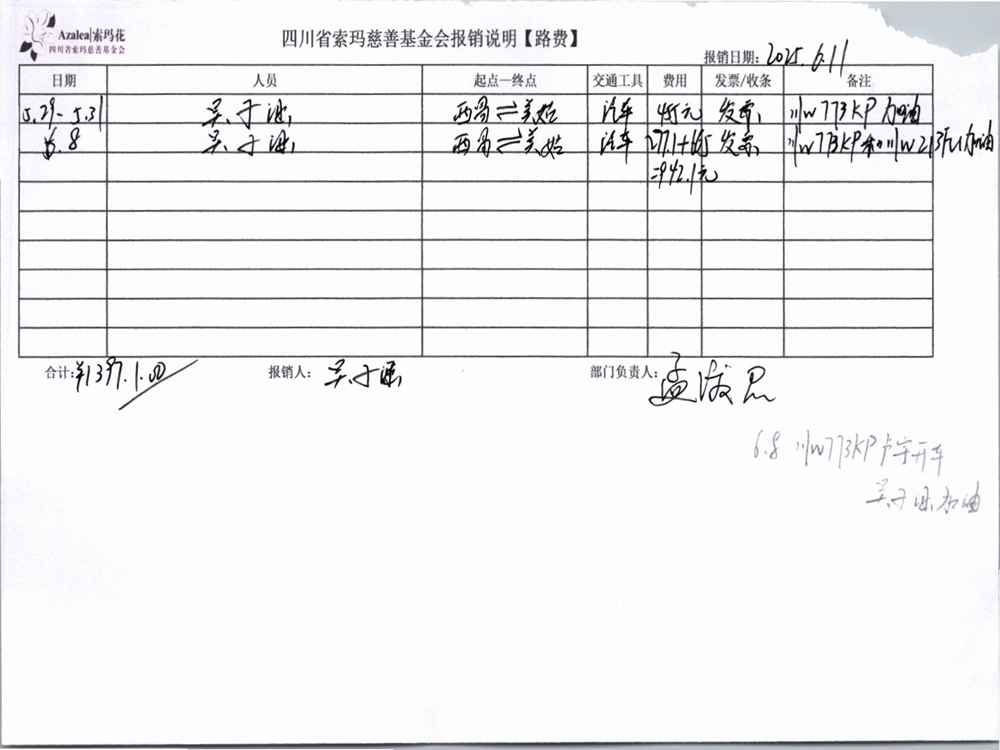 Azalea|索玛花
四川省索玛慈善基金会
四川省索玛慈善基金会报销说明【路费】
报销日期: 2025.6.11
日期 人员 起点—终点 交通工具 费用 发票/收条 备注
5.29-5.31 吴于 西昌⇌美姑 汽车 455元 发票 川W773KP 加油
6.8 吴于 西昌⇌美姑 汽车 277.1+665 发票 川W773KP和川W213 加油
=942.1元
合计: ¥1397.1.00 报销人: 吴于 部门负责人: 孟
6.8 川W773KP 卢宇开车
吴于 加油